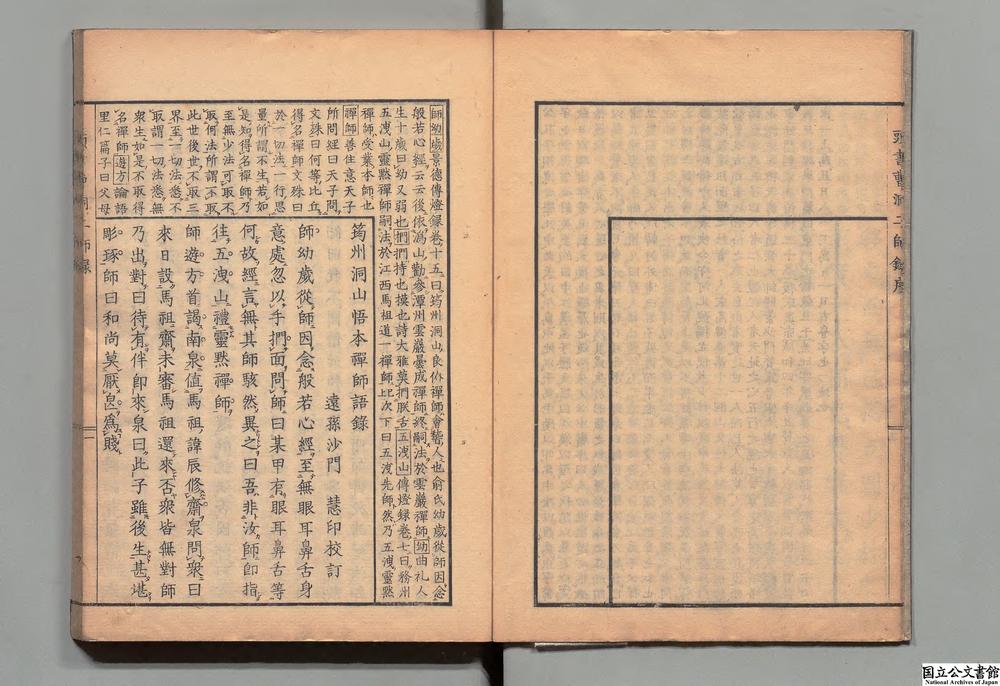 頭書曹洞二師錄序
師幼歲景德傳燈錄卷十五曰筠州洞山良价禪師會稽人也俞氏幼歲從師因念
般若心經云云後依溈山勸參潭州雲巖曇成禪師終嗣法於雲巖禪師幼曲礼人
生十歲曰幼又弱也捫捫持也摸也詩大雅莫捫朕舌五洩山傳燈錄卷七曰務州
五洩山靈默禪師嗣法於江西馬祖道一禪師
禪師受業本師也
禪師善住意天子
所問經曰天子問
文殊曰何等比丘
得名禪師文殊曰
於一切法一行思
量所謂不生若如
是知得名禪師乃
至無少法可取不
取何法所謂不取
此世後世不取三
界至一切法悉不
取謂一切法悉無
衆生如是不取得
名禪師遊方論語
里仁篇子曰父母
筠州洞山悟本禪師語錄
遠孫沙門 慧印校訂
師幼歲從師因念般若心經至無眼耳鼻舌身
意處忽以手捫面問師曰某甲有眼耳鼻舌等
何故經言無其師駭然異之曰吾非汝師卽指
往五洩山禮靈默禪師
師遊方首謁南泉値馬祖諱辰修齋泉問衆曰
來日設馬祖齋未審馬祖還來否衆皆無對師
乃出對曰待有伴卽來泉曰此子雖後生甚堪
彫琢師曰和尚莫厭良爲賤
国立公文書館
National Archives of Japan